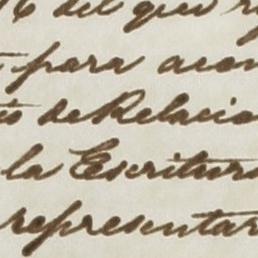 16 del que r
para acom
to de Relacio
la Escritura
representar